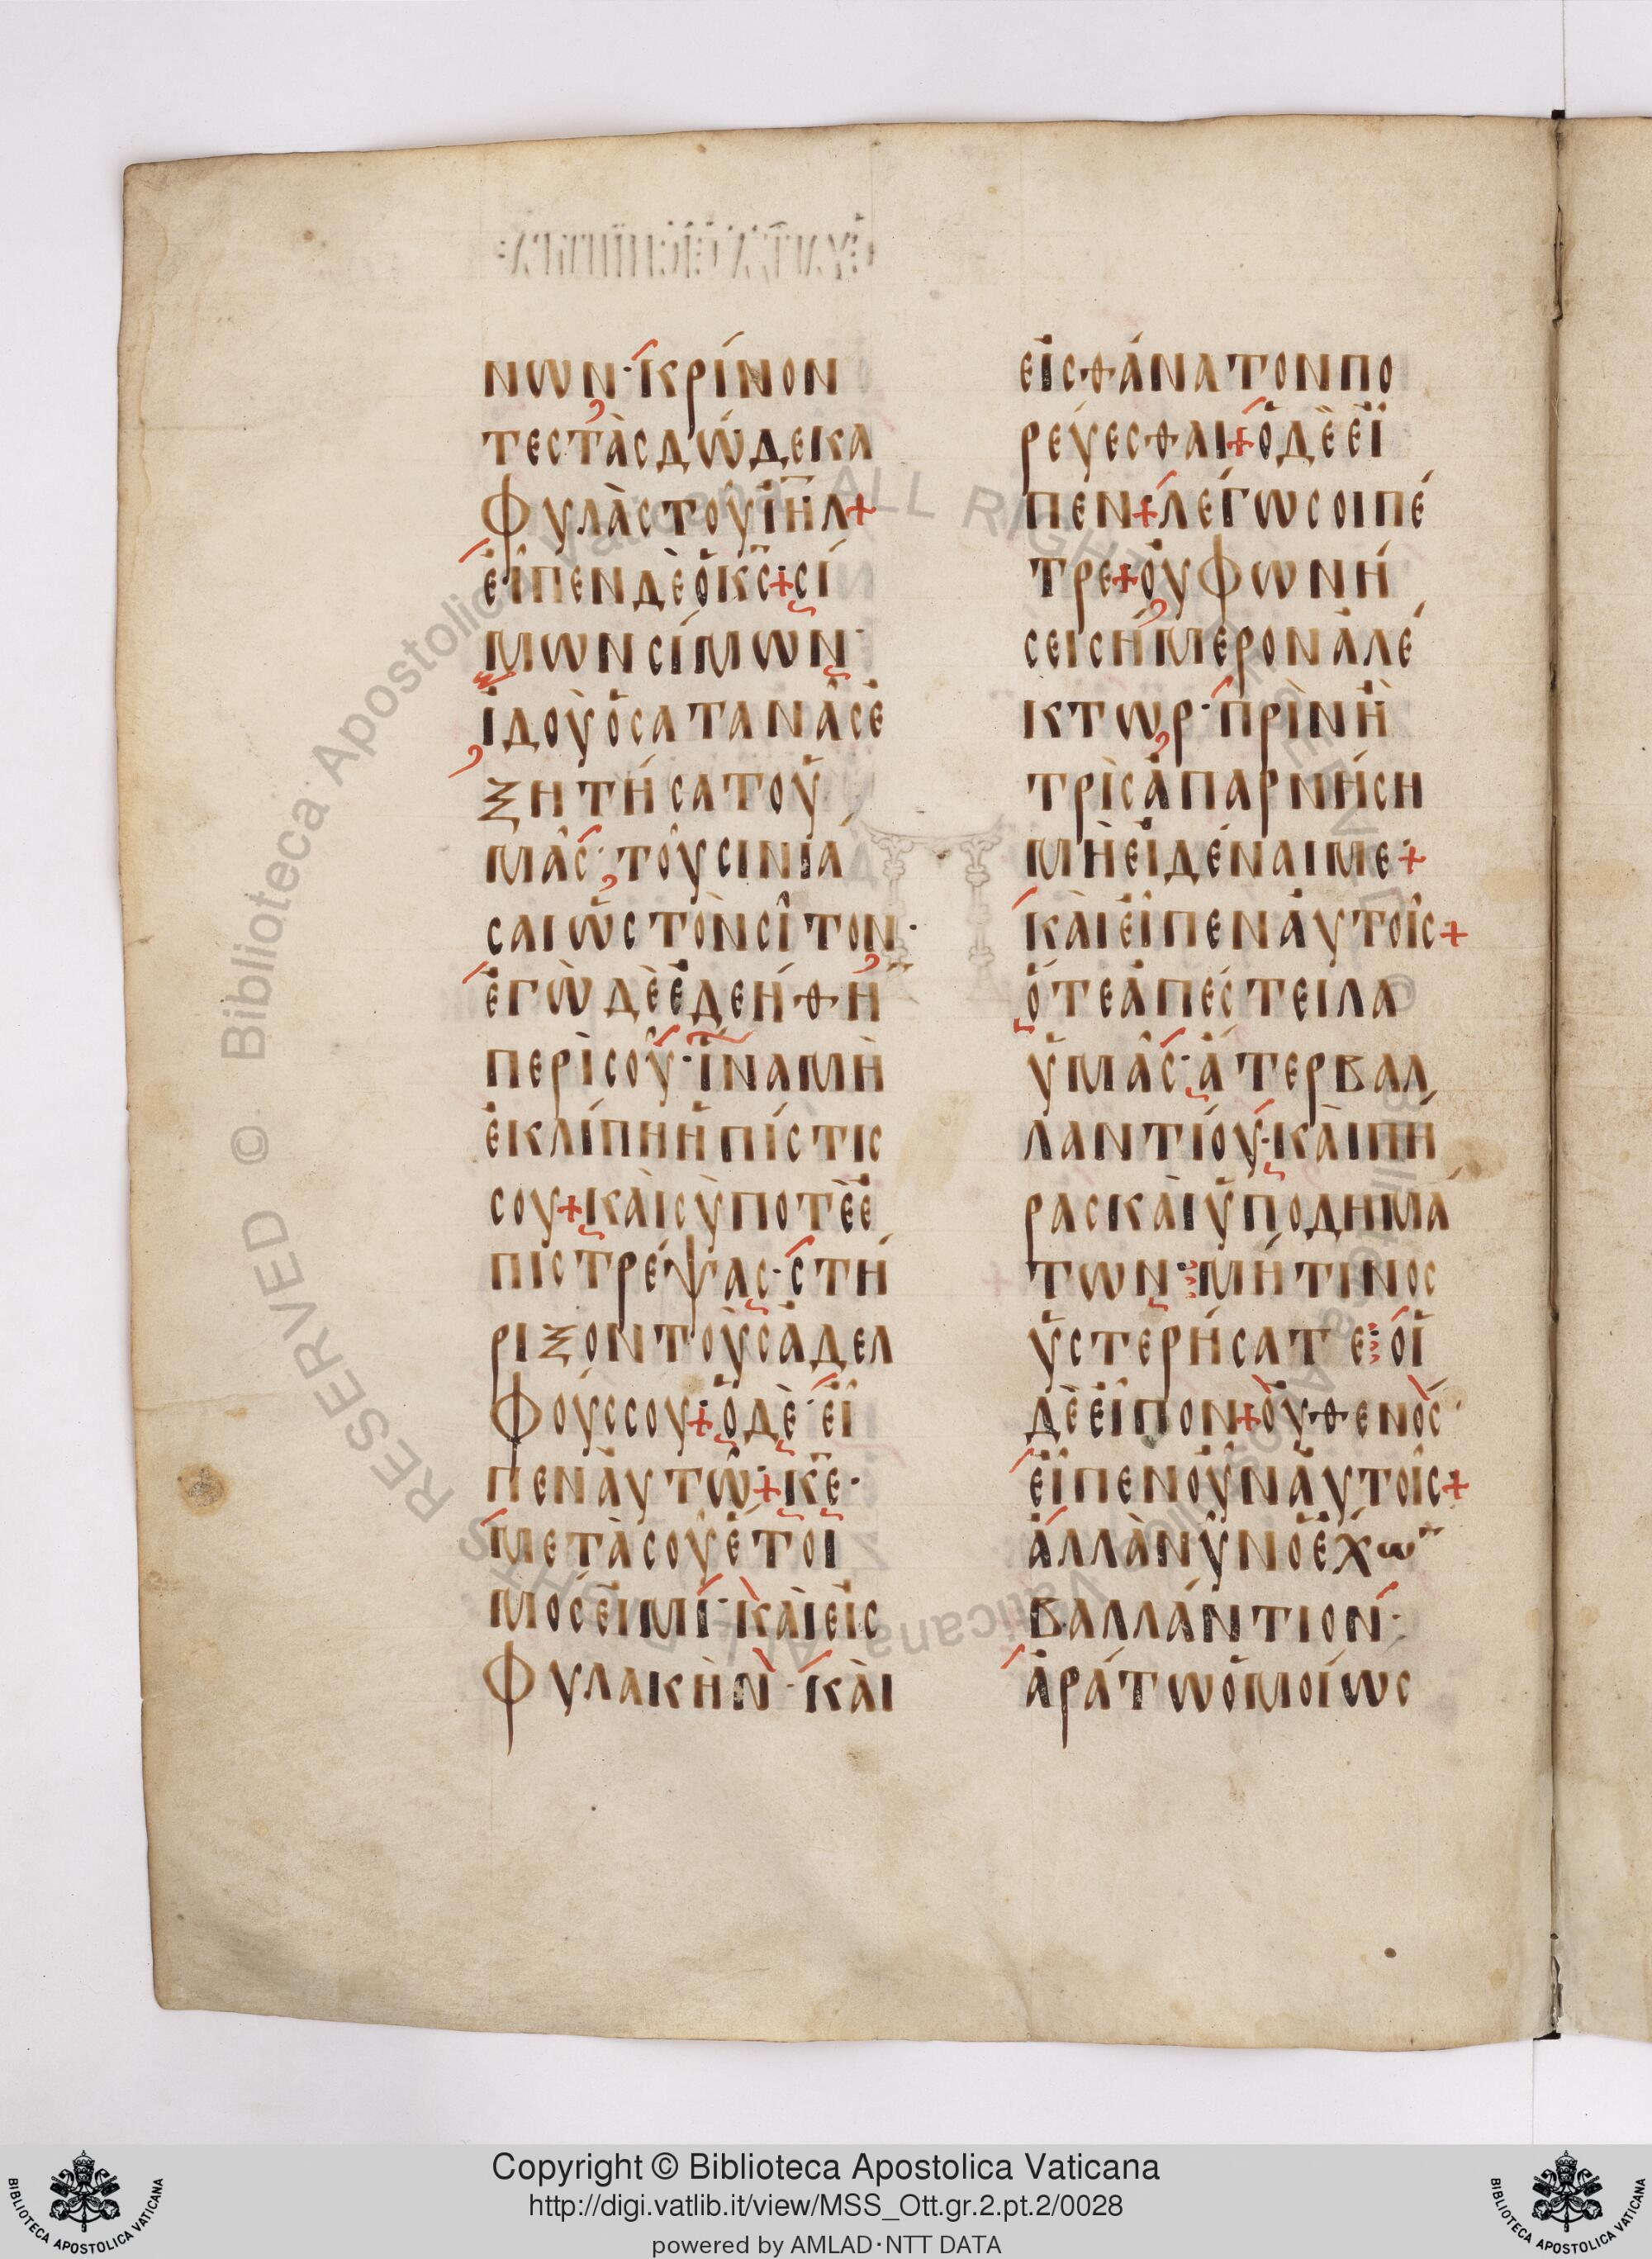 νων· κρίνον
τες τὰς δώδεκα
φυλὰς τοῦ ἰη̅λ+
εἶπεν δὲ ὁ κ̅ς̅+ σί
μων σίμων·
ἰδοὺ ὁ σατανᾶς ἐ
ξητήσατο ὑ
μᾶς· τοῦ σινιά
σαι ὡς τὸν σῖτον·
ἐγὼ δὲ ἐδεήθη
περὶ σοῦ· ἵνα μὴ
ἐκλίπη ἡ πίστις
σου+ καὶ σὺ ποτὲ ἐ
πιστρέψας· στή
ριξον τοὺς ἀδελ
φούς σου+ ὁ δὲ εἶ
πεν αὐτῷ+ κ̅ε̅·
μετὰ σοῦ ἕτοι
μός εἰμί· καὶ εἰς
φυλακὴν· καὶ
εἰς θάνατον πο
ρεύεσθαι+ ὁ δὲ εἶ
πεν+ λέγω σοι πέ
τρε+ οὐ φωνή
σει σήμερον ἀλέ
κτωρ· πρὶν ἢ
τρὶς ἀπαρνήση
μὴ εἰδέναι με+
καὶ εἶπεν αὐτοῖς+
ὅτε ἀπέστειλα
ὑμᾶς· ἄτερ βαλ
λαντίου· καὶ πή
ρας καὶ ὑποδημά
των· μή τινος
ὑστερήσατε· οἱ
δὲ εἶπον+ οὐθενὸς·
εἶπεν οὖν αὐτοῖς+
ἀλλὰ νῦν ὁ ἔχων
βαλλάντιον·
ἀράτω ὁμοίως
Copyright © Biblioteca Apostolica Vaticana
http://digi.vatlib.it/view/MSS_Ott.gr.2.pt.2/0028
powered by AMLAD·NTT DATA
BIBLIOTECA APOSTOLICA VATICANA
BIBLIOTECA APOSTOLICA VATICANA